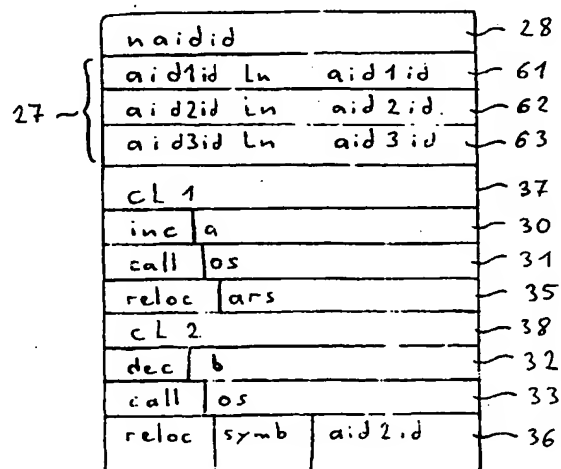 naidid 28
aid1id ln aid1id 61
27
aid2id ln aid2id 62
aid3id ln aid3id 63
cl 1 37
inc a 30
call os 31
reloc ars 35
cl 2 38
dec b 32
call os 33
reloc symb aid2id 36